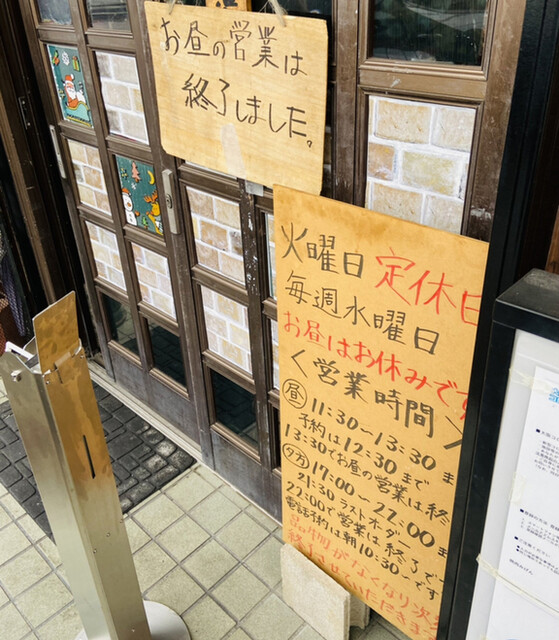 お昼の営業は
終了しました。
火曜日 定休日
毎週水曜日
お昼はお休みです
〈営業時間〉
昼 11:30〜13:30 ま
予約は12:30まで
13:30でお昼の営業は終
夕方 17:00〜22:00 ま
21:30 ラストオーダー
22:00で営業は終了で
電話予約は朝10:30〜です
品物がなくなり次
終了させていただきま